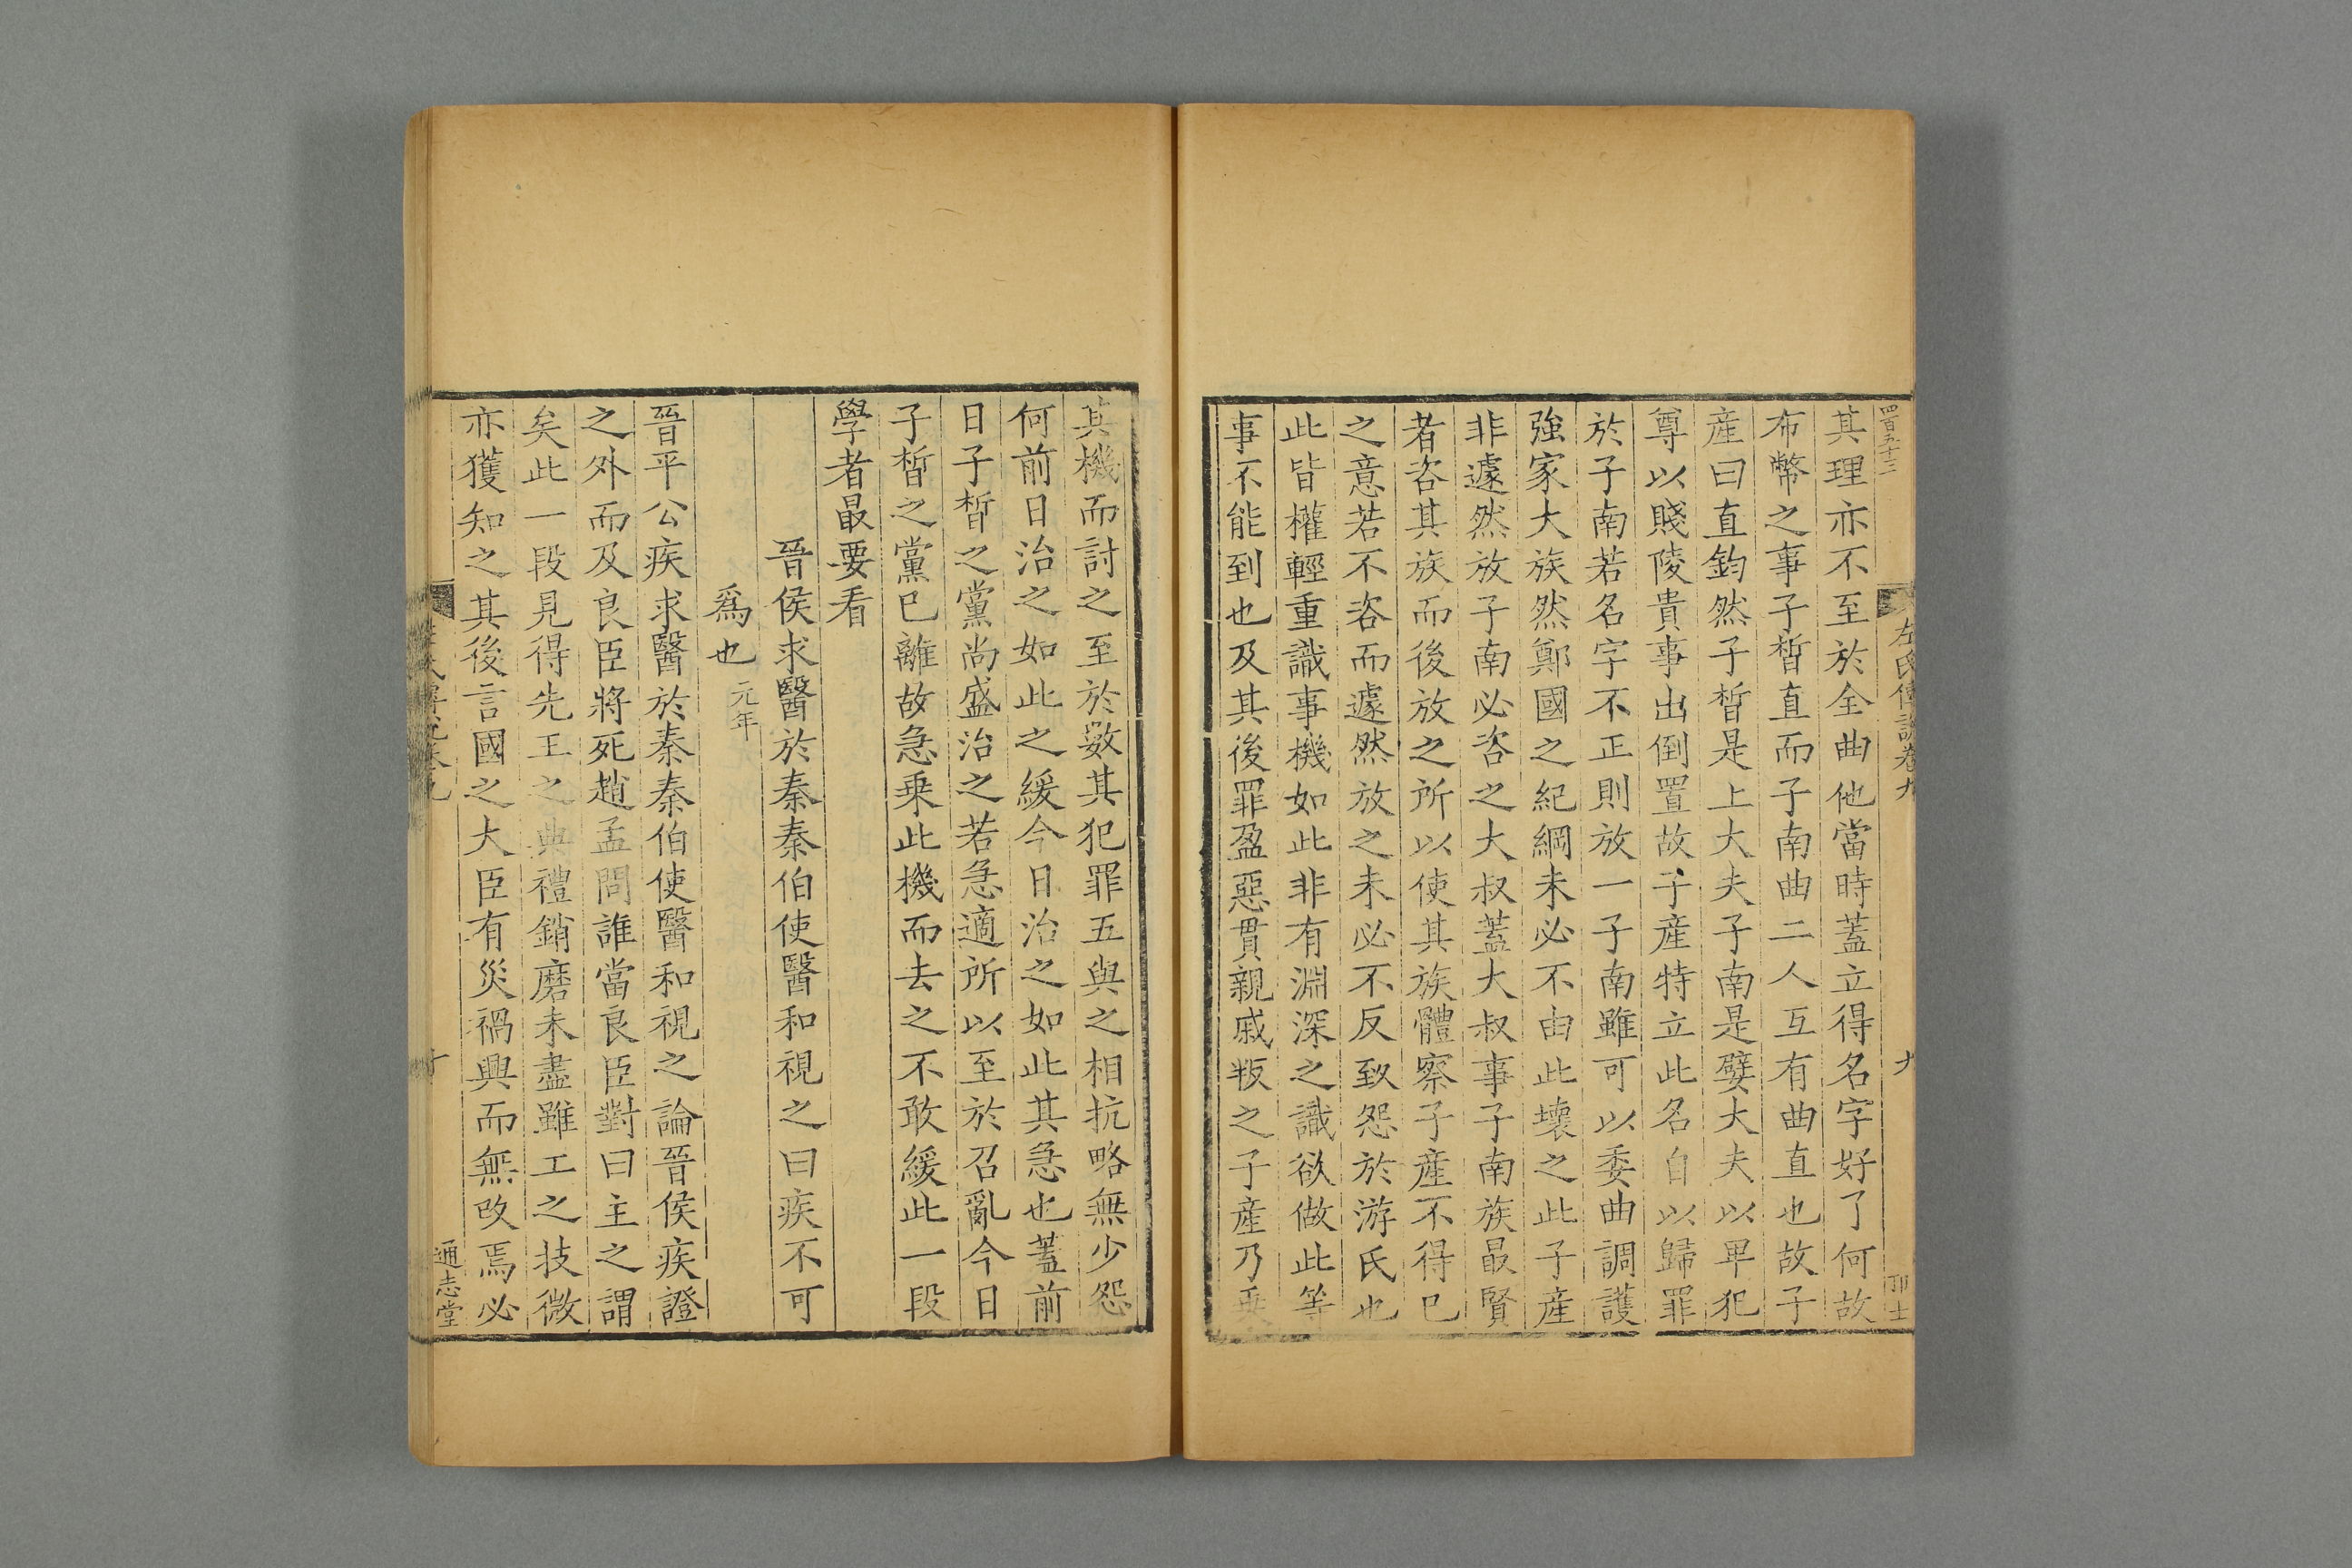 四百五十三
左氏傳說卷九
九
其理亦不至於全曲他當時蓋立得名字好了何故
布幣之事子晳直而子南曲二人互有曲直也故子
産曰直鈞然子晳是上大夫子南是嬖大夫以畢犯
尊以賤陵貴事出倒置故子産特立此名自以歸罪
於子南若名字不正則放一子南雖可以委曲調護
強家大族然鄭國之紀綱未必不由此壊之此子産
非遽然放子南必咨之大叔蓋大叔事子南族最賢
者咨其族而後放之所以使其族體察子産不得已
之意若不咨而遽然放之未必不反致怨於游氏也
此皆權輕重識事機如此非有淵深之識欲做此等
事不能到也及其後罪盈惡貫親戚叛之子産乃乗
其機而討之至於數其犯罪五與之相抗略無少怨
何前日治之如此之緩今日治之如此其急也蓋前
日子晳之黨尚盛治之若急適所以至於召亂今日
子晳之黨已離故急乗此機而去之不敢緩此一段
學者最要看
晉侯求醫於秦秦伯使醫和視之曰疾不可
爲也元年
晉平公疾求醫於秦秦伯使醫和視之論晉侯疾證
之外而及良臣將死趙孟問誰當良臣對曰主之謂
矣此一段見得先王之典禮銷磨未盡雖工之技微
亦獲知之其後言國之大臣有災禍興而無改焉必
十
通志堂